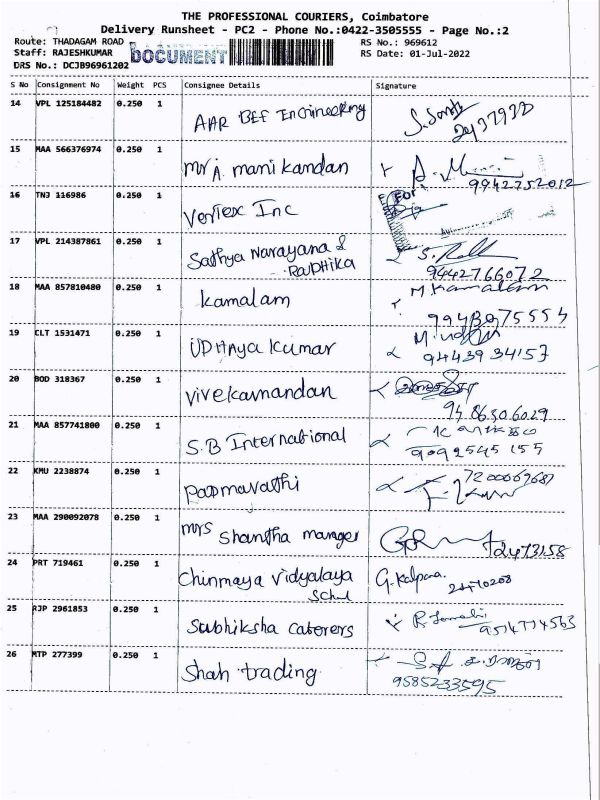 THE PROFESSIONAL COURIERS, Coimbatore
Delivery Runsheet - PC2 - Phone No.:0422-3505555 - Page No.:2
Route: THADAGAM ROAD
Staff: RAJESHKUMAR
DRS No.: DCJB96961202
DOCUMENT
RS No.: 969612
RS Date: 01-Jul-2022
S No Consignment No Weight PCS Consignee Details Signature
14 VPL 125184482 0.250 1 AAR BEE Engineering
15 MAA 566376974 0.250 1 Mr A. Manikandan 9942752012
16 TNJ 116986 0.250 1 Vertex Inc For
17 VPL 214387861 0.250 1 Sathya Narayana &
Radhika 9442766072
18 MAA 857810480 0.250 1 Kamalam M Kamalam
9943075554
19 CLT 1531471 0.250 1 UDHAya Kumar
9443934157
20 BOD 318367 0.250 1 Vivekamandan
9486506029
21 MAA 857741800 0.250 1 S.B International
9092545155
22 KMU 2238874 0.250 1 Padmavathi 7200069687
23 MAA 290092078 0.250 1 Mrs Shantha manager 72473158
24 PRT 719461 0.250 1 Chinmaya Vidyalaya G. Kalpana
25 RJP 2961853 0.250 1 Subhiksha caterers
9514774563
26 MTP 277399 0.250 1 Shah trading
9585233595